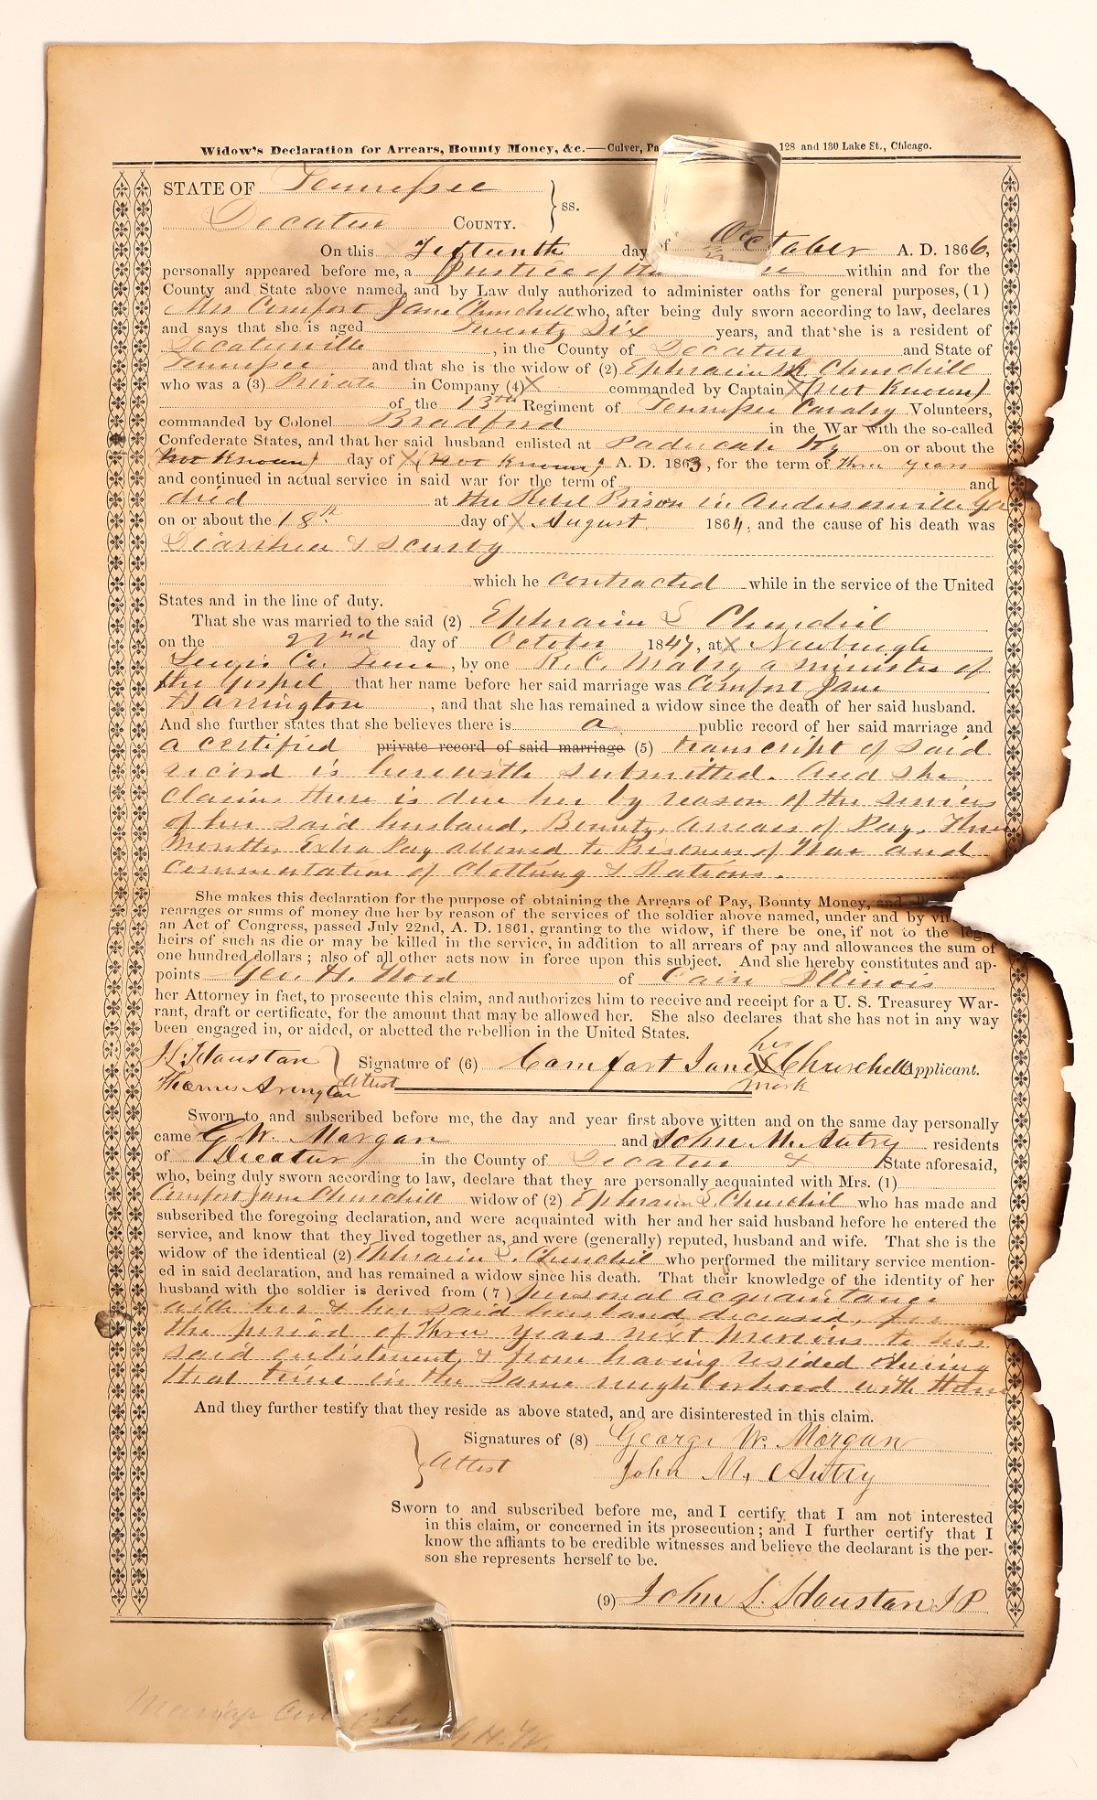 Widow's Declaration for Arrears, Bounty Money, &c.—Culver, Pa 128 and 130 Lake St., Chicago.
STATE OF Tennessee
Decatur COUNTY. } ss.
On this Fifteenth day of October A. D. 1866,
personally appeared before me, a Justice of the within and for the
County and State above named, and by Law duly authorized to administer oaths for general purposes, (1)
Mrs Comfort Jane Churchill who, after being duly sworn according to law, declares
and says that she is aged Twenty Six years, and that she is a resident of
Decaturville, in the County of Decatur and State of
Tennessee and that she is the widow of (2) Ephraim Churchill
who was a (3) Private in Company (4) X commanded by Captain X (Not Known)
of the 13th Regiment of Tennessee Cavalry Volunteers,
commanded by Colonel Bradford in the War with the so-called
Confederate States, and that her said husband enlisted at Paducah Ky on or about the
(Not Known) day of X (Not Known) A. D. 1863, for the term of three years
and continued in actual service in said war for the term of and
died at the Rebel Prison in Andersonville Ga
on or about the 18th day of X August 1864, and the cause of his death was
Diarrhea & Scurvy
which he contracted while in the service of the United
States and in the line of duty.
That she was married to the said (2) Ephraim S Churchil
on the 22nd day of October 1847, at X Newburgh
Lewis Co. Tenn, by one R. C. Mabry a minister of
the Gospel that her name before her said marriage was Comfort Jane
Harrington, and that she has remained a widow since the death of her said husband.
And she further states that she believes there is a public record of her said marriage and
a certified private record of said marriage (5) transcript of said
record is herewith submitted. And she
claims there is due her by reason of the services
of her said husband, Bounty, Arrears of Pay, Three
Months Extra Pay allowed to Prisoners of War and
commutation of Clothing & Rations.
She makes this declaration for the purpose of obtaining the Arrears of Pay, Bounty Money, and
rearages or sums of money due her by reason of the services of the soldier above named, under and by vir
an Act of Congress, passed July 22nd, A. D. 1861, granting to the widow, if there be one, if not to the lega
heirs of such as die or may be killed in the service, in addition to all arrears of pay and allowances the sum of
one hundred dollars; also of all other acts now in force upon this subject. And she hereby constitutes and ap-
points Geo. H. Wood of Cairo Illinois
her Attorney in fact, to prosecute this claim, and authorizes him to receive and receipt for a U. S. Treasurey War-
rant, draft or certificate, for the amount that may be allowed her. She also declares that she has not in any way
been engaged in, or aided, or abetted the rebellion in the United States.
J L Houstan } Signature of (6) Comfort Jane her X mark Churchell Applicant.
Thomas Arington Attest
Sworn to and subscribed before me, the day and year first above witten and on the same day personally
came G W. Morgan and John M. Autry residents
of Decatur in the County of Decatur & State aforesaid,
who, being duly sworn according to law, declare that they are personally acquainted with Mrs. (1)
Comfort Jane Churchill widow of (2) Ephraim S Churchil who has made and
subscribed the foregoing declaration, and were acquainted with her and her said husband before he entered the
service, and know that they lived together as, and were (generally) reputed, husband and wife. That she is the
widow of the identical (2) Ephraim S. Churchil who performed the military service mention-
ed in said declaration, and has remained a widow since his death. That their knowledge of the identity of her
husband with the soldier is derived from (7) personal acquaintance
with her & her said husband deceased, for
the period of three years next previous to his
said enlistment, & from having resided during
that time in the same neighborhood with them
And they further testify that they reside as above stated, and are disinterested in this claim.
Signatures of (8) George W. Morgan
} Attest John M. Autry
Sworn to and subscribed before me, and I certify that I am not interested
in this claim, or concerned in its prosecution; and I further certify that I
know the affiants to be credible witnesses and believe the declarant is the per-
son she represents herself to be.
(9) John L. Houstan J P
G. H. W.